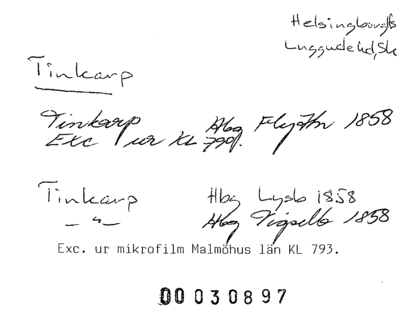 Helsingborgs
Luggude hd, Sk
Tinkarp
Tinkarp Hbg 1858
Exc ur KL 790.
Tinkarp Hbg Lysb 1858
— " — Hbg 1858
Exc. ur mikrofilm Malmöhus län KL 793.
00030897